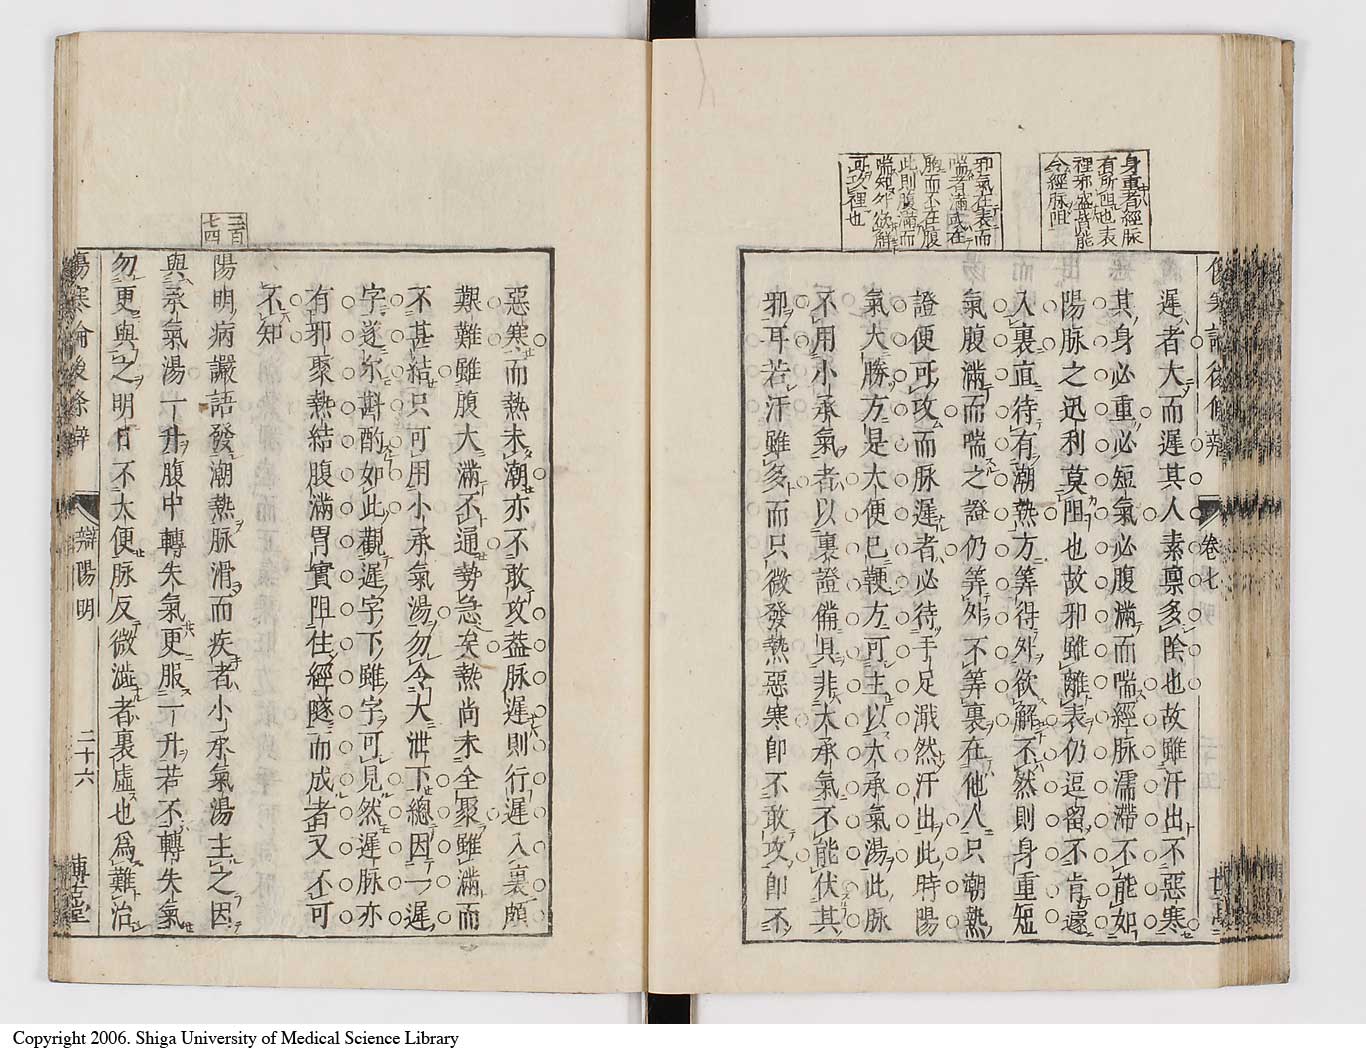 身重者經脈
有所阻也表
裡邪盛皆能
令經脈阻
邪氣在表而
喘者滿或在
胸而不在腹
此則腹滿而
喘知外欲解
可攻裡也
卷七
遲者大而遲其人素稟多陰也故雖汗出不惡寒
其身必重必短氣必腹滿而喘經脈濡滯不能如
陽脈之迅利莫阻也故邪雖離表仍逗留不肯遽
入裏直待有潮熱方筭得外欲解不然則身重短
氣腹滿而喘之證仍筭外不筭裏在他人只潮熱
證便可攻而脈遲者必待手足濈然汗出此時陽
氣大勝方是大便已鞕方可主以大承氣湯此脈
不用小承氣者以裏證備具非大承氣不能伏其
邪耳若汗雖多而只微發熱惡寒卽不敢攻卽不
惡寒而熱未潮亦不敢攻蓋脈遲則行遲入裏頗
艱難雖腹大滿不通勢急矣熱尚未全聚雖滿而
不甚結只可用小承氣湯勿令大泄下總因一遲
字遂尒斟酌如此觀遲字下雖字可見然遲脈亦
有邪聚熱結腹滿胃實阻住經隧而成者又不可
不知
二百
七四
陽明病讝語發潮熱脈滑而疾者小承氣湯主之因
與承氣湯一升腹中轉失氣更服一升若不轉失氣
勿更與之明日不大便脈反微澁者裏虛也爲難治
傷寒論後條辨
辯陽明
二十六
博古堂
Copyright 2006. Shiga University of Medical Science Library